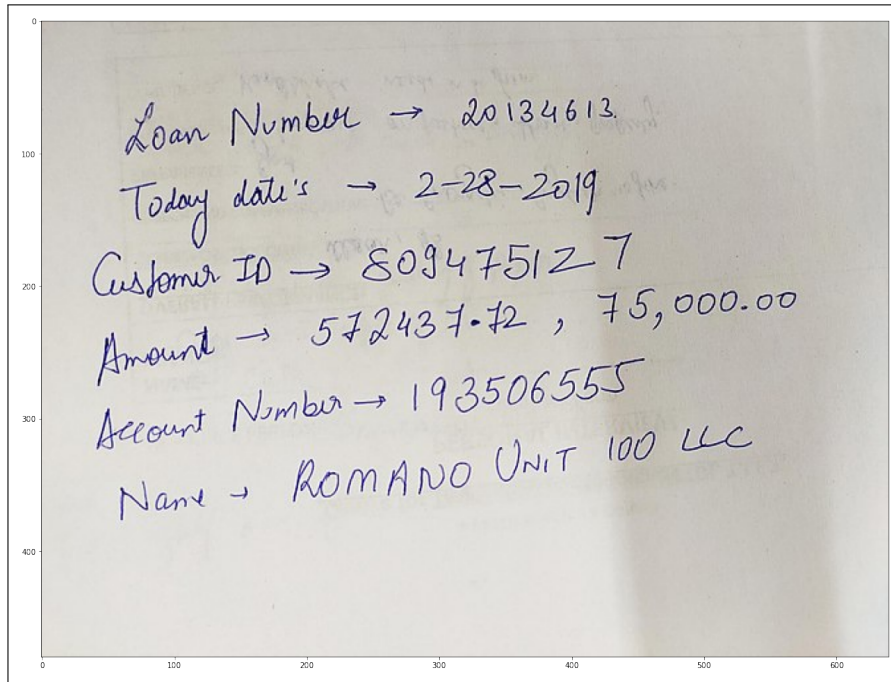 Loan Number → 20134613.
Today date's → 2-28-2019
Customer ID → 809475127
Amount → 572437.72 , 75,000.00
Account Number → 193506555
Name → ROMANO UNIT 100 LLC
0
100
200
300
400
0 100 200 300 400 500 600